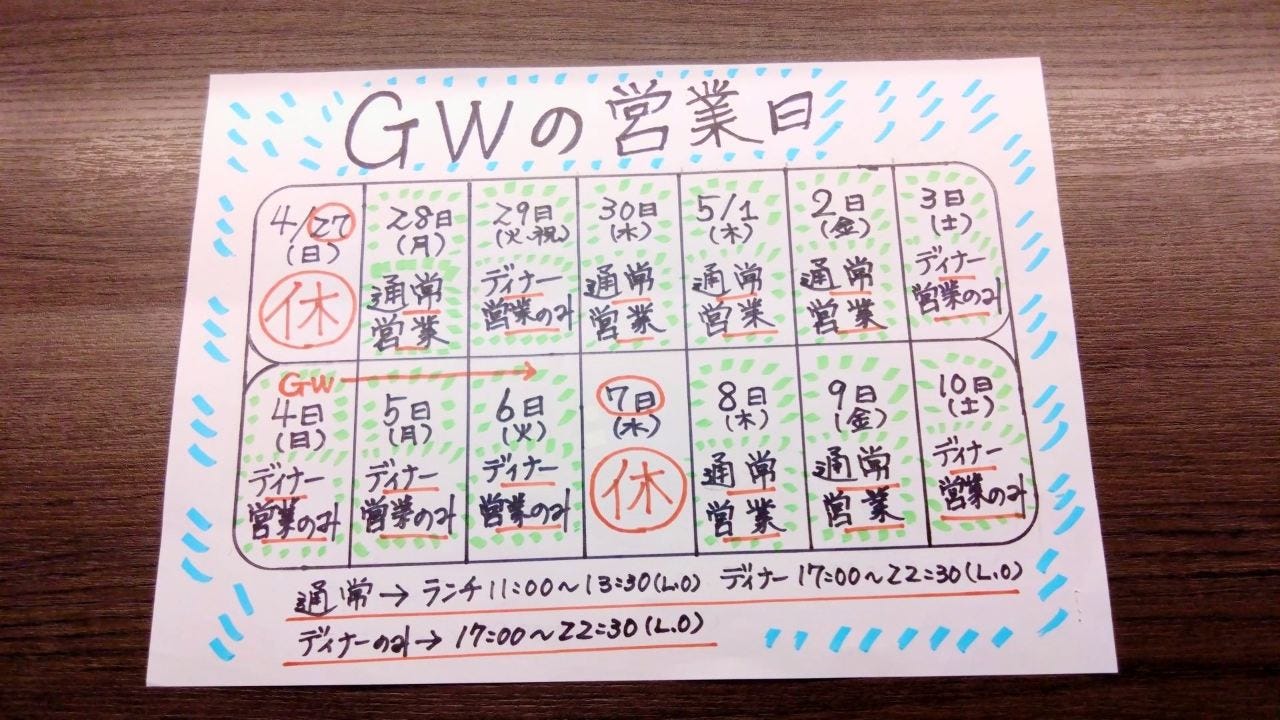 GWの営業日
4/27
(日)
休
28日
(月)
通常
営業
29日
(火、祝)
ディナー
営業のみ
30日
(水)
通常
営業
5/1
(木)
通常
営業
2日
(金)
通常
営業
3日
(土)
ディナー
営業のみ
GW→
4日
(日)
ディナー
営業のみ
5日
(月)
ディナー
営業のみ
6日
(火)
ディナー
営業のみ
7日
(水)
休
8日
(木)
通常
営業
9日
(金)
通常
営業
10日
(土)
ディナー
営業のみ
通常→ランチ11:00~13:30(L.O) ディナー17:00~22:30(L.O)
ディナーのみ→17:00~22:30(L.O)